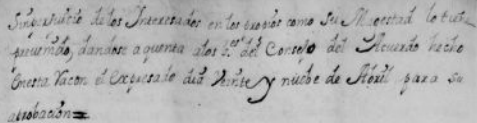 Sinperjuicio de los Interesados en los propios como su Magestad lo tiene
prevenido, dandose aquenta alos S.res del Consejo del Acuerdo hecho
Enesta Racon el Expresado dia Veinte y nuebe de Abril para su
aprobacion=